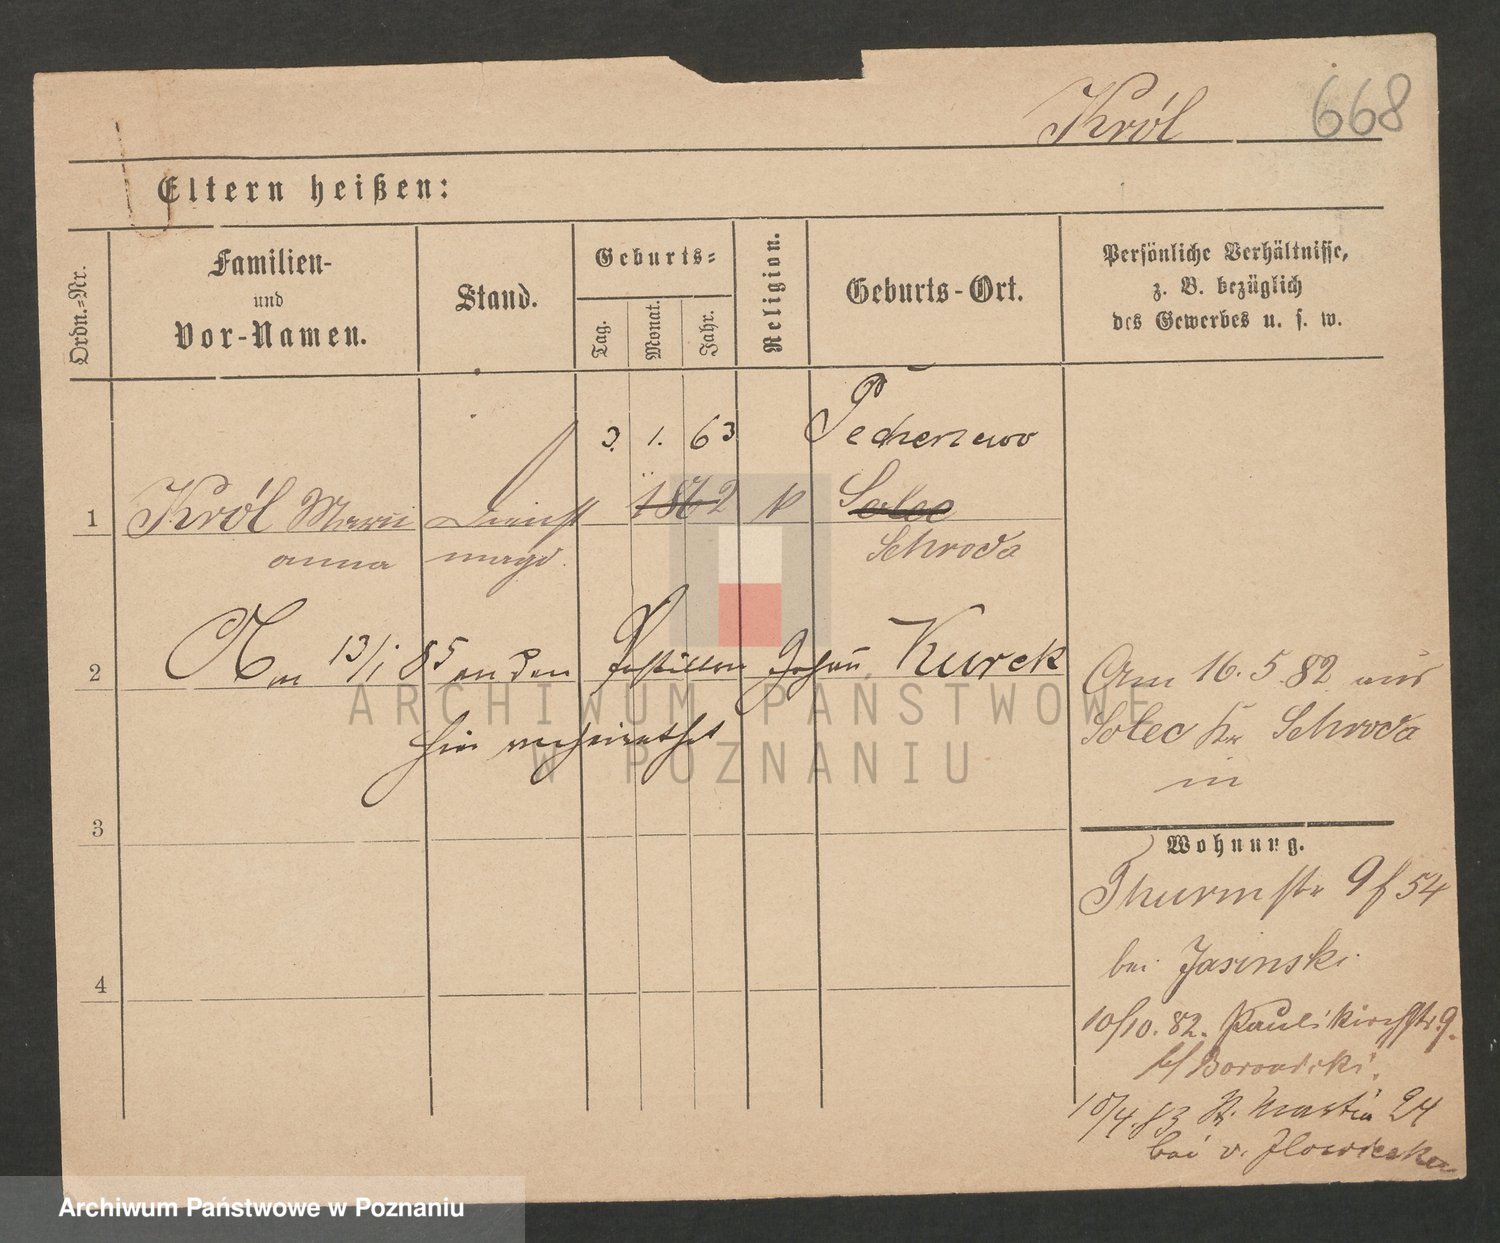 Król 668
Eltern heißen:
Ordn.-Nr.
Familien-
und
Vor-Namen.
Stand.
Geburts-
Tag.
Monat.
Jahr.
Religion.
Geburts-Ort.
Persönliche Verhältnisse,
z. B. bezüglich
des Gewerbes u. s. w.
3. 1. 63
1 Król Mari Dienst 1862 k Solec
anna magd. Schroda
2 Am 13/1 85 an den Postillon Johann Kurek
hier verheirathet
Am 16.5.82 aus
Solec Kr Schroda
in
3
Wohnung.
Thurmstr 9 f 54
bei Jasinski.
4
10/10.82. Paulikirchstr. 9.
b/
10/4.83 St. Martin 24
bei v.
ARCHIWUM PAŃSTWOWE
W POZNANIU
Archiwum Państwowe w Poznaniu